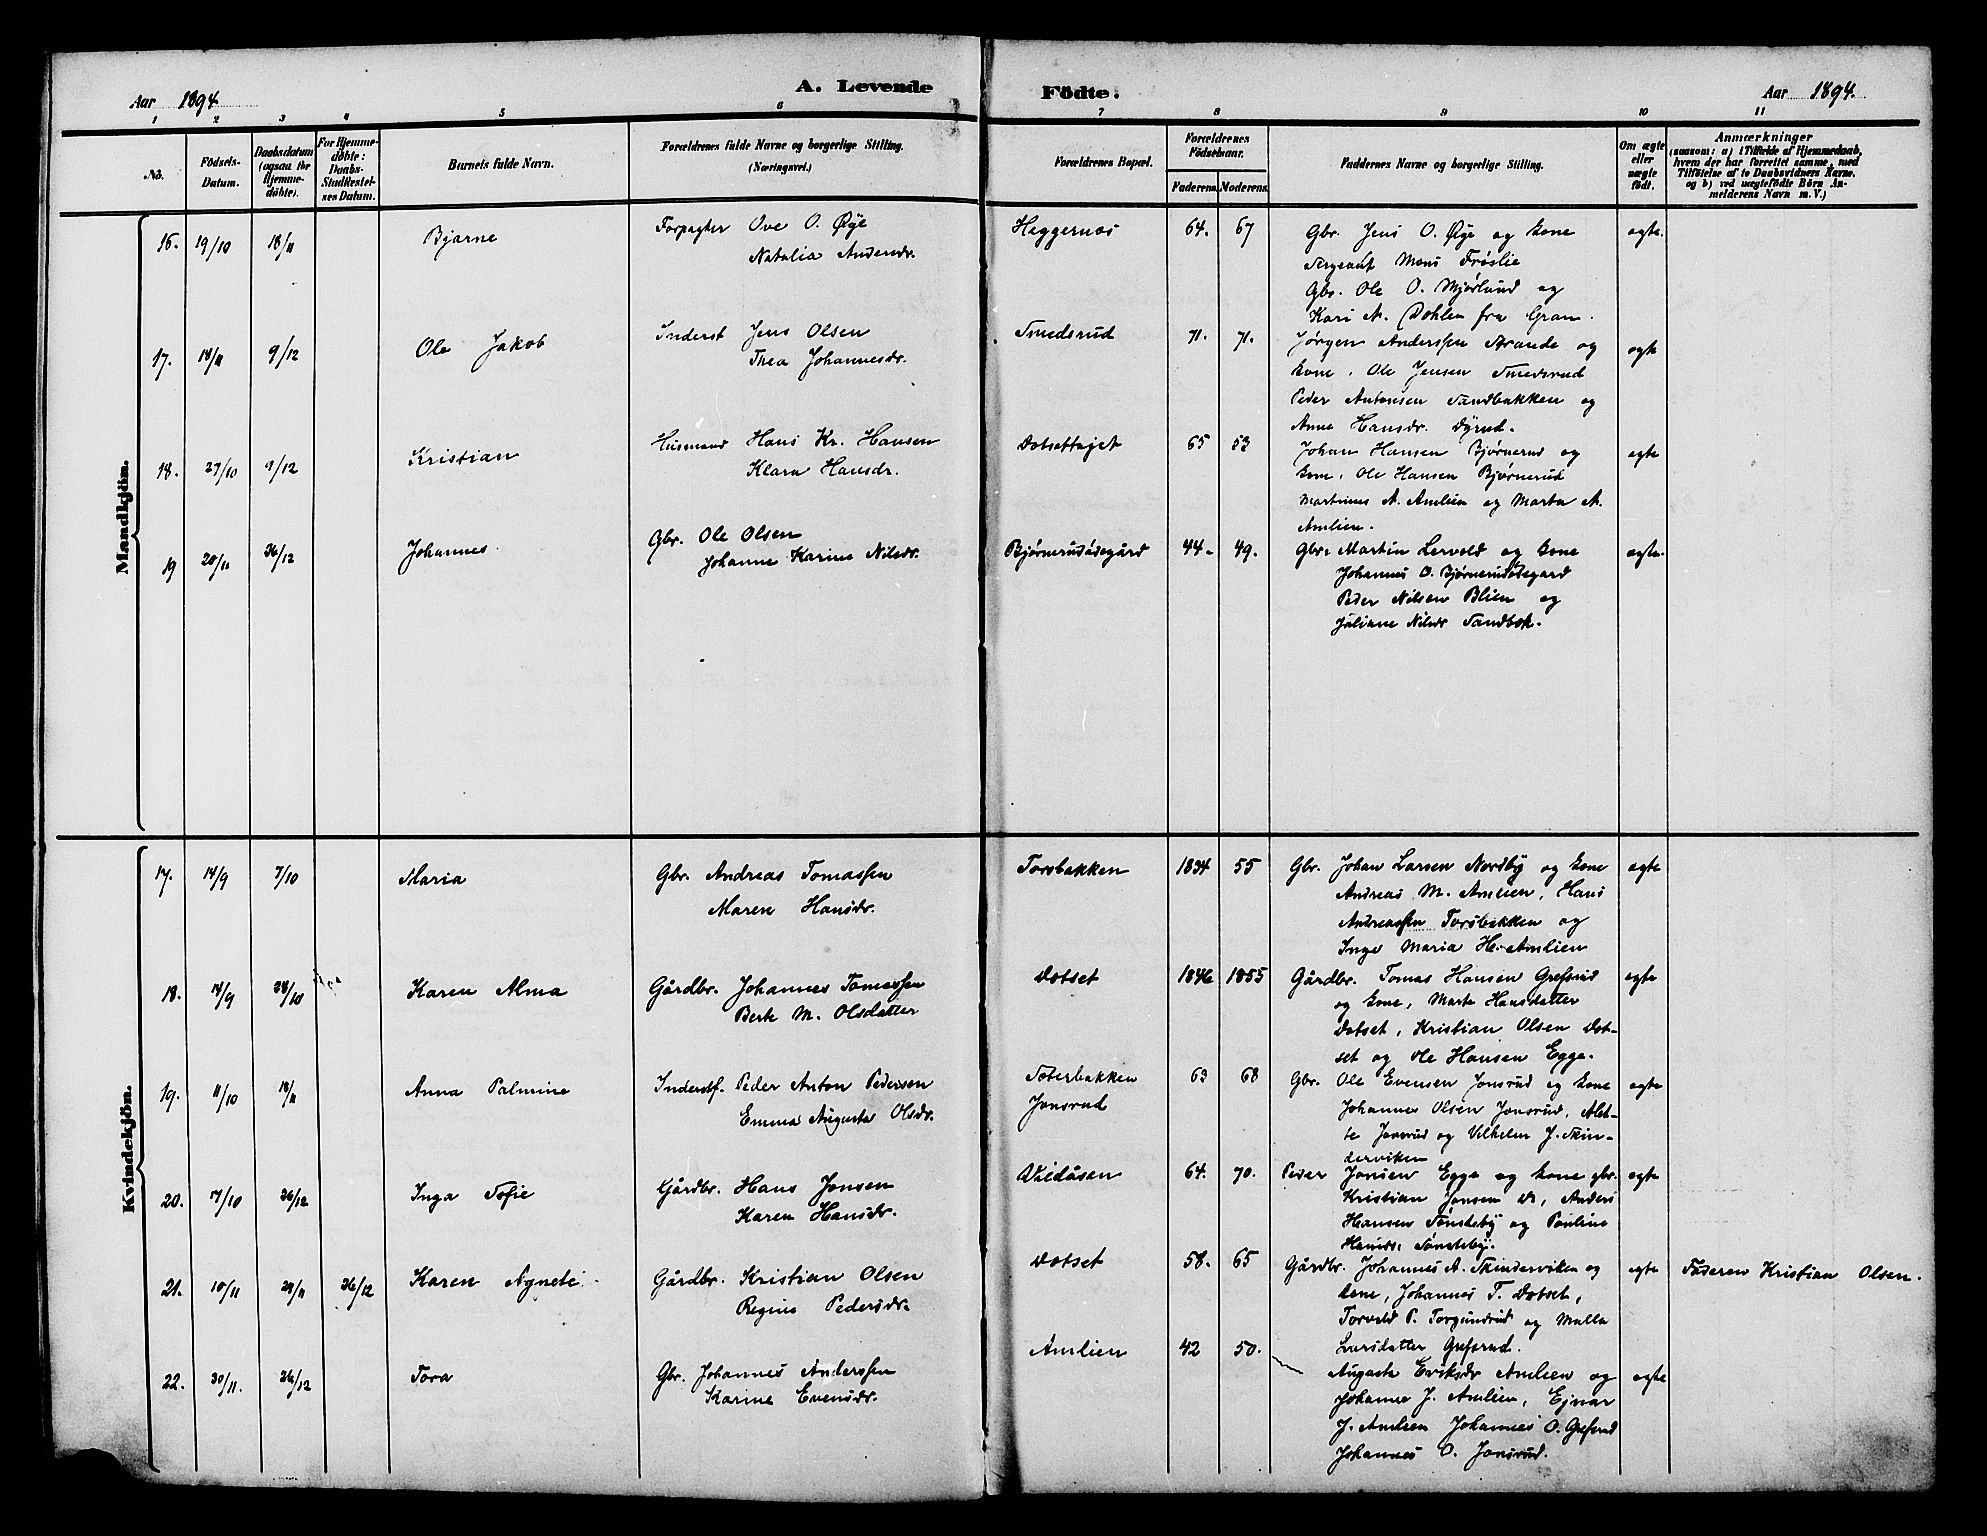 A. Levende Födte.
Aar 1894. Aar 1894.
1 2 3 4 5 6 7 8 9 10 11
No. Födsels-Datum. Daabsdatum (ogsaa for Hjemmedöbte). For Hjemmedöbte: Daabs-Stadfæstelses Datum. Barnets fulde Navn. Forældrenes fulde Navne og borgerlige Stilling. (Næringsvei.) Forældrenes Bopæl. Forældrenes Födselsaar. Faderens. Moderens. Faddernes Navne og borgerlige Stilling. Om ægte eller uægte födt. Anmærkninger (saasom: a) i Tilfælde af Hjemmedaab, hvem der har forrettet samme, med Tilföielse af to Daabsvidners Navne, og b) ved uægtefödte Börn Anmelderens Navn m. V.)
Mandkjön.
16. 19/10 18/11 Bjarne Forpagter Ove O. Øye Heggernæs 64. 67 Gbr. Jens O. Øye og kone ægte.
Natalia Andersdr. Sergeant Mons Frøslie
Gbr. Ole O. Mjørlund og
Kari A. Dohlen fra Gran.
17. 18/11 9/12 Ole Jakob Inderst Jens Olsen Smedsrud 71. 71. Jørgen Anderssen Strande og ægte
Thea Johannesdr. kone, Ole Jensen Smedsrud
Peder Antonsen Sandbakken og
Anne Hansdr. Dyrud.
18. 27/10 9/12 Kristian Husmand Hans Kr. Hansen Dotsethajet 65 53 Johan Hansen Bjørnerud og ægte
Klara Hansdr. kone, Ole Hansen Bjørnerud
Martinus A. Amlien og Marta A.
Amlien.
19 20/11 26/12 Johannes Gbr. Ole Olsen Bjørnerudødegård 44 49. Gbr. Martin Lervold og kone ægte.
Johanne Karine Nilsdr. Johannes O. Bjørnerudødegard
Peder Nilsen Blien og
Juliane Nilsdr Sandbok.
Kvindekjön.
17. 14/9 7/10 Maria Gbr. Andreas Tomassen Torsbakken 1834 55 Gbr. Johan Larsen Nordby og kone ægte
Maren Hansdr. Andreas M. Amlien, Hans
Andreassen Torsbakken og
Inge Maria H. Amlien
18. 14/9 28/10 Karen Alma Gårdbr. Johannes Tomassen Dotset 1846 1855 Gårdbr. Tomas Hansen Grefsrud ægte
Berte M. Olsdatter og kone, Marte Hansdatter
Dotset, Kristian Olsen Dot-
set og Ole Hansen Egge.
19. 11/10 18/11 Anna Palmine Inderstf. Peder Anton Pedersen Søterbakken 63 68 Gbr. Ole Evensen Jonsrud og kone ægte
Emma Augusta Olsdr. Jonsrud Johannes Olsen Jonsrud, Alet-
te Jonsrud og Vilhelm J. Skin-
derviken
20. 17/10 26/12 Inga Sofie Gårdbr. Hans Jonsen Vildåsen 64. 70. Peder Jonsen Egge og kone gbr. ægte
Karen Hansdr. Kristian Jonsen Ds, Anders
Hansen Sønsteby og Pauline
Hansdr. Sønsteby.
21. 10/11 29/11 26/12 Karen Agnete Gårdbr. Kristian Olsen Dotset 58. 65 Gårdbr. Johannes A. Skinderviken og ægte Faderen Kristian Olsen.
Regine Pedersdr. kone, Johannes T. Dotset,
Torvald P. Torgundrud og Malla
Larsdatter Grefsrud.
22. 30/11. 26/12 Tora Gbr. Johannes Anderssen Amlien 42 50. Augusta Eriksdr Amlien og ægte
Karine Evensdr. Johanne J. Amlien, Ejnar
J. Amlien Johannes O. Grefsrud
Johannes O. Jonsrud.